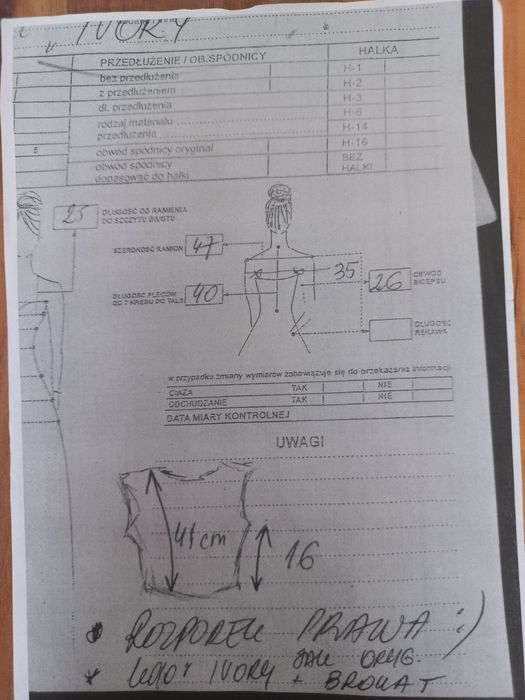 IVORY
PRZEDŁUŻENIE / OB.SPÓDNICY HALKA
bez przedłużenia H-1
z przedłużeniem H-2
dł. przedłużenia H-3
rodzaj materiału H-6
przedłużenia H-14
5 obwód spódnicy oryginał H-16
obwód spódnicy BEZ
dopasować do halki HALKI
25 DŁUGOŚĆ OD RAMIENIA
DO SZCZYTU BIUSTU
SZEROKOŚĆ RAMION 47
35
26 OBWÓD
BICEPSU
DŁUGOŚĆ PLECÓW
OD 7 KRĘGU DO TALII 40
DŁUGOŚĆ
RĘKAWA
w przypadku zmiany wymiarów zobowiązuje się do przekazania informacji
CIĄŻA TAK NIE
ODCHUDZANIE TAK NIE
DATA MIARY KONTROLNEJ
UWAGI
41 cm
16
* ROZPOREK PRAWA :)
* IVORY JAK ORYG.
+ BROKAT